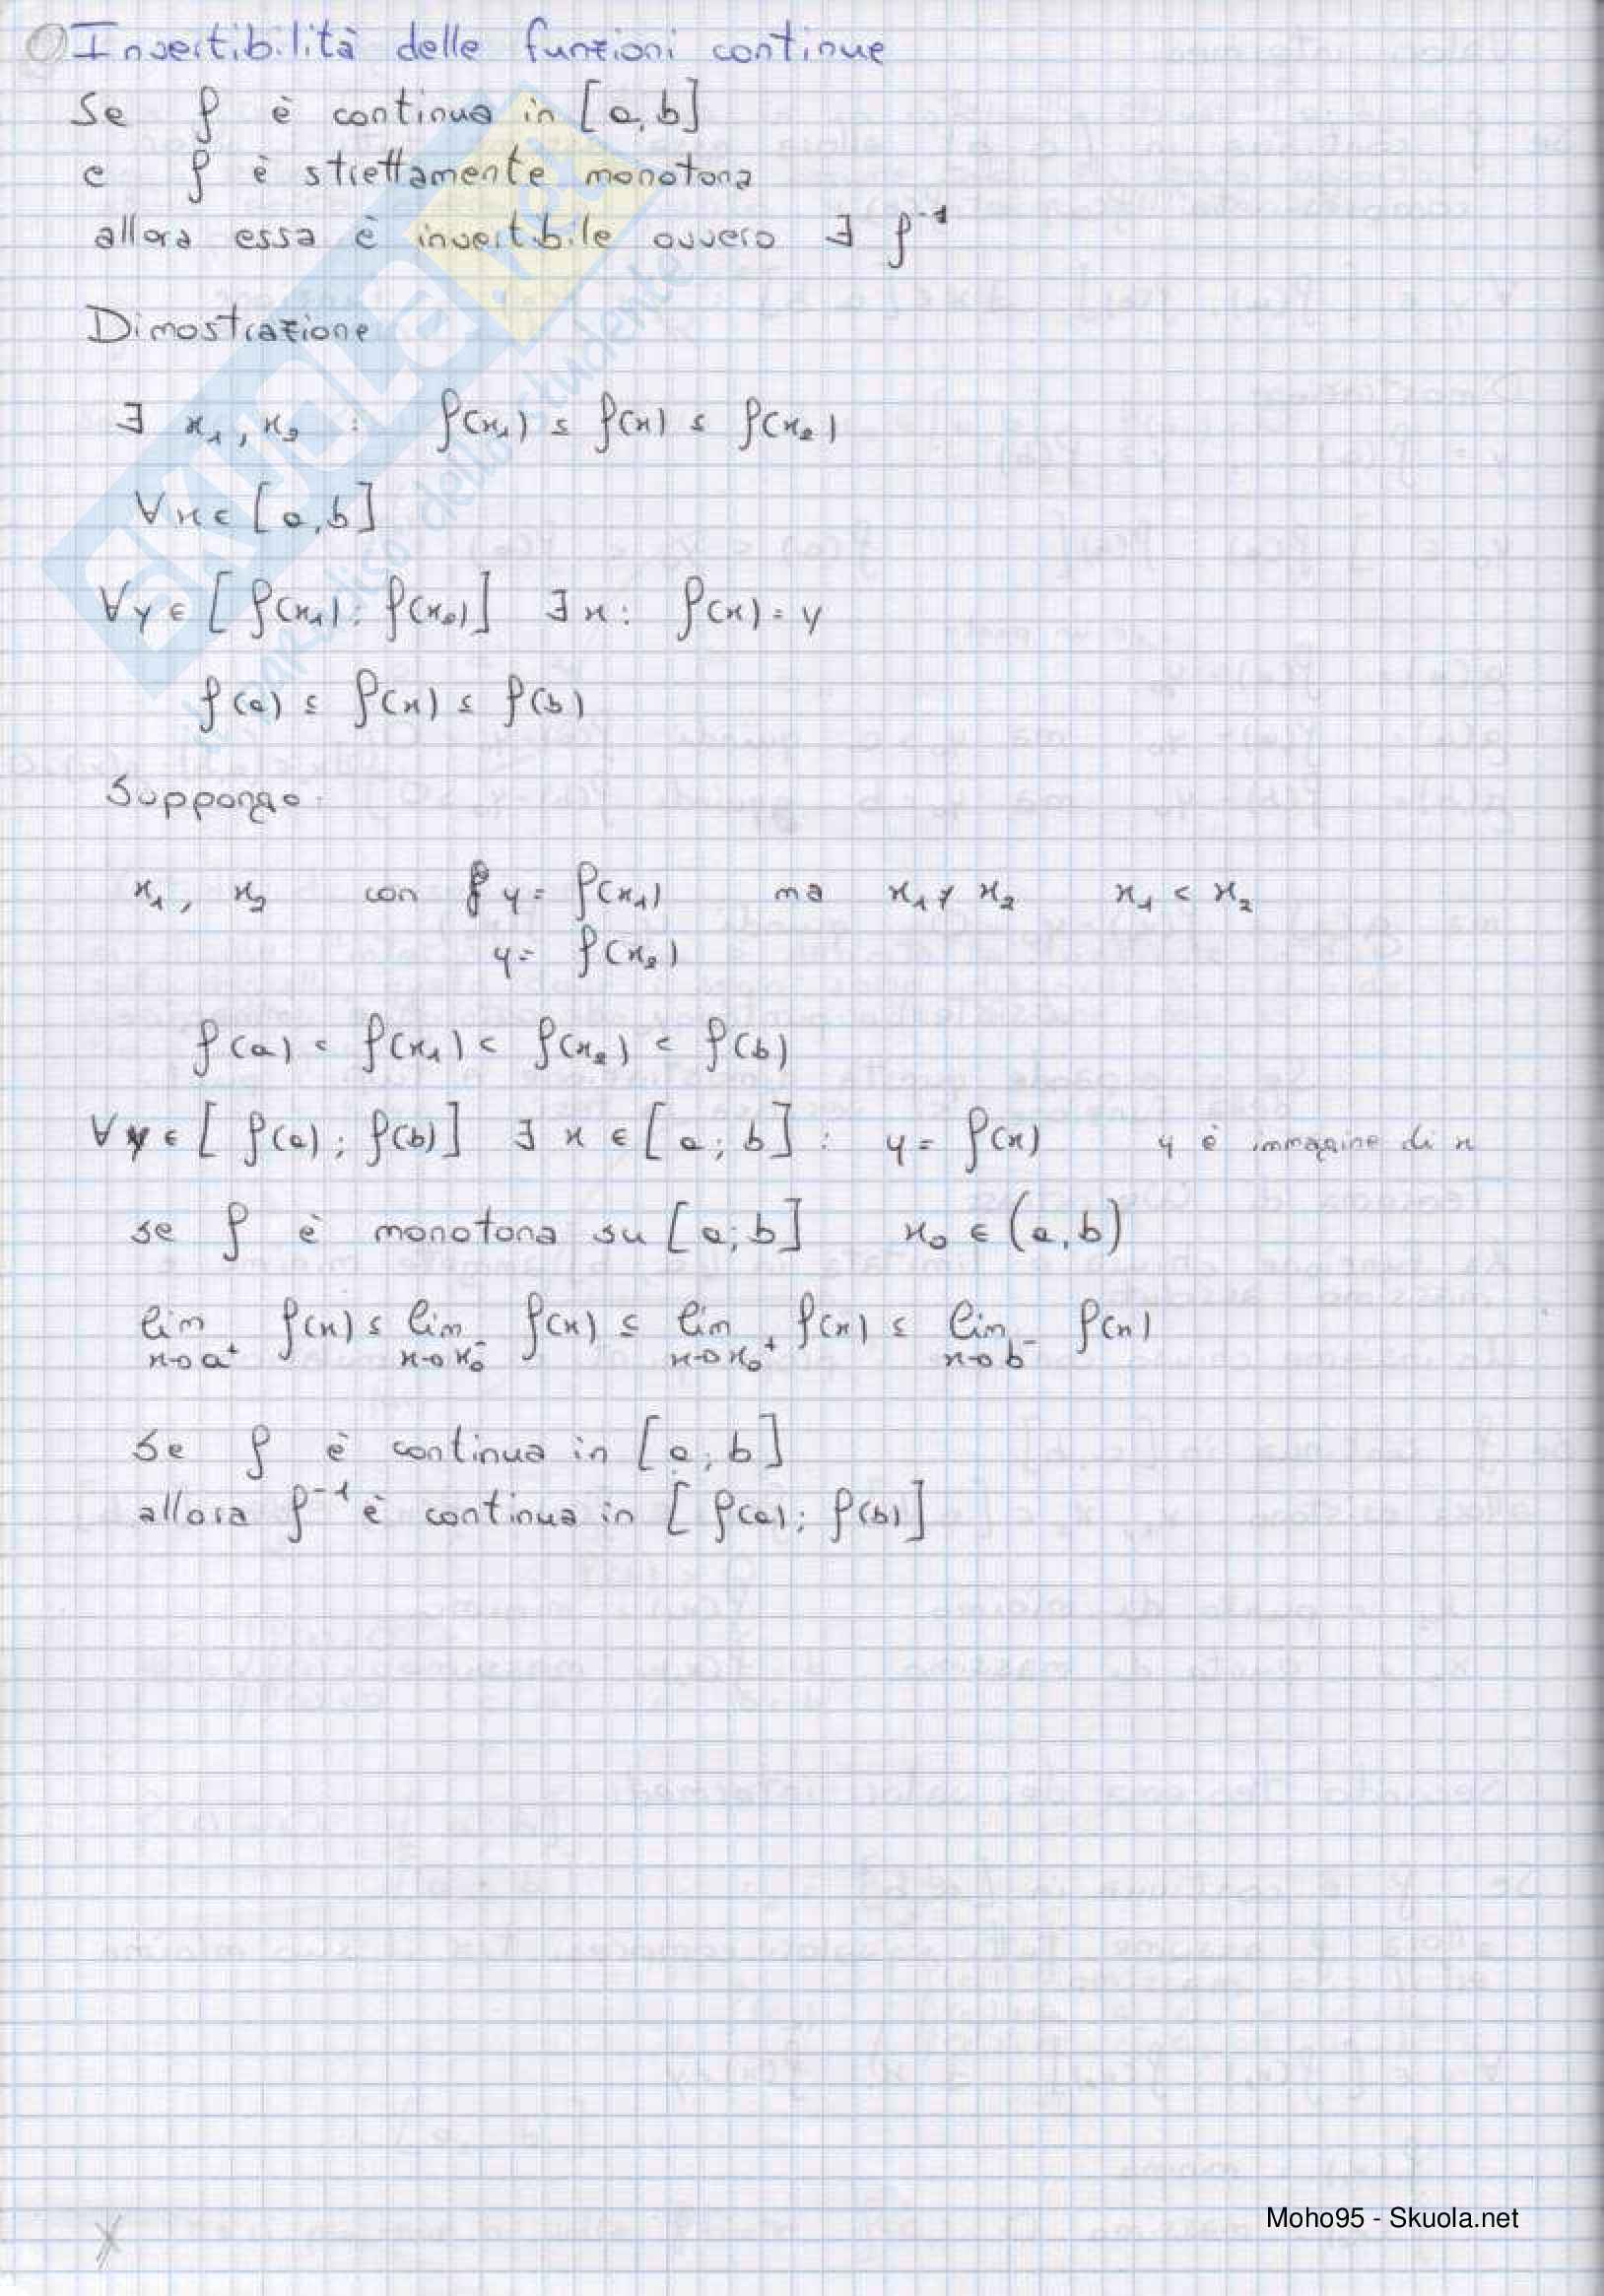 Invertibilità delle funzioni continue
Se f è continua in [a,b]
e f è strettamente monotona
allora essa è invertibile ovvero ∃ f⁻¹
Dimostrazione
∃ x₁, x₂ : f(x₁) ≤ f(x) ≤ f(x₂)
∀x∈ [a,b]
∀y∈ [f(x₁); f(x₂)] ∃x: f(x)=y
f(a) ≤ f(x) ≤ f(b)
Suppongo:
x₁, x₂ con y= f(x₁) ma x₁≠x₂ x₁ < x₂
y= f(x₂)
f(a) < f(x₁) < f(x₂) < f(b)
∀y∈ [f(a); f(b)] ∃ x ∈ [a; b] : y = f(x) y è immagine di x
se f è monotona su [a;b] x₀ ∈ (a,b)
lim x→a⁺ f(x) ≤ lim x→x₀⁻ f(x) ≤ lim x→x₀⁺ f(x) ≤ lim x→b⁻ f(x)
Se f è continua in [a; b]
allora f⁻¹ è continua in [f(a); f(b)]
SKUOLA.net
il paradiso dello studente
Moho95 - Skuola.net